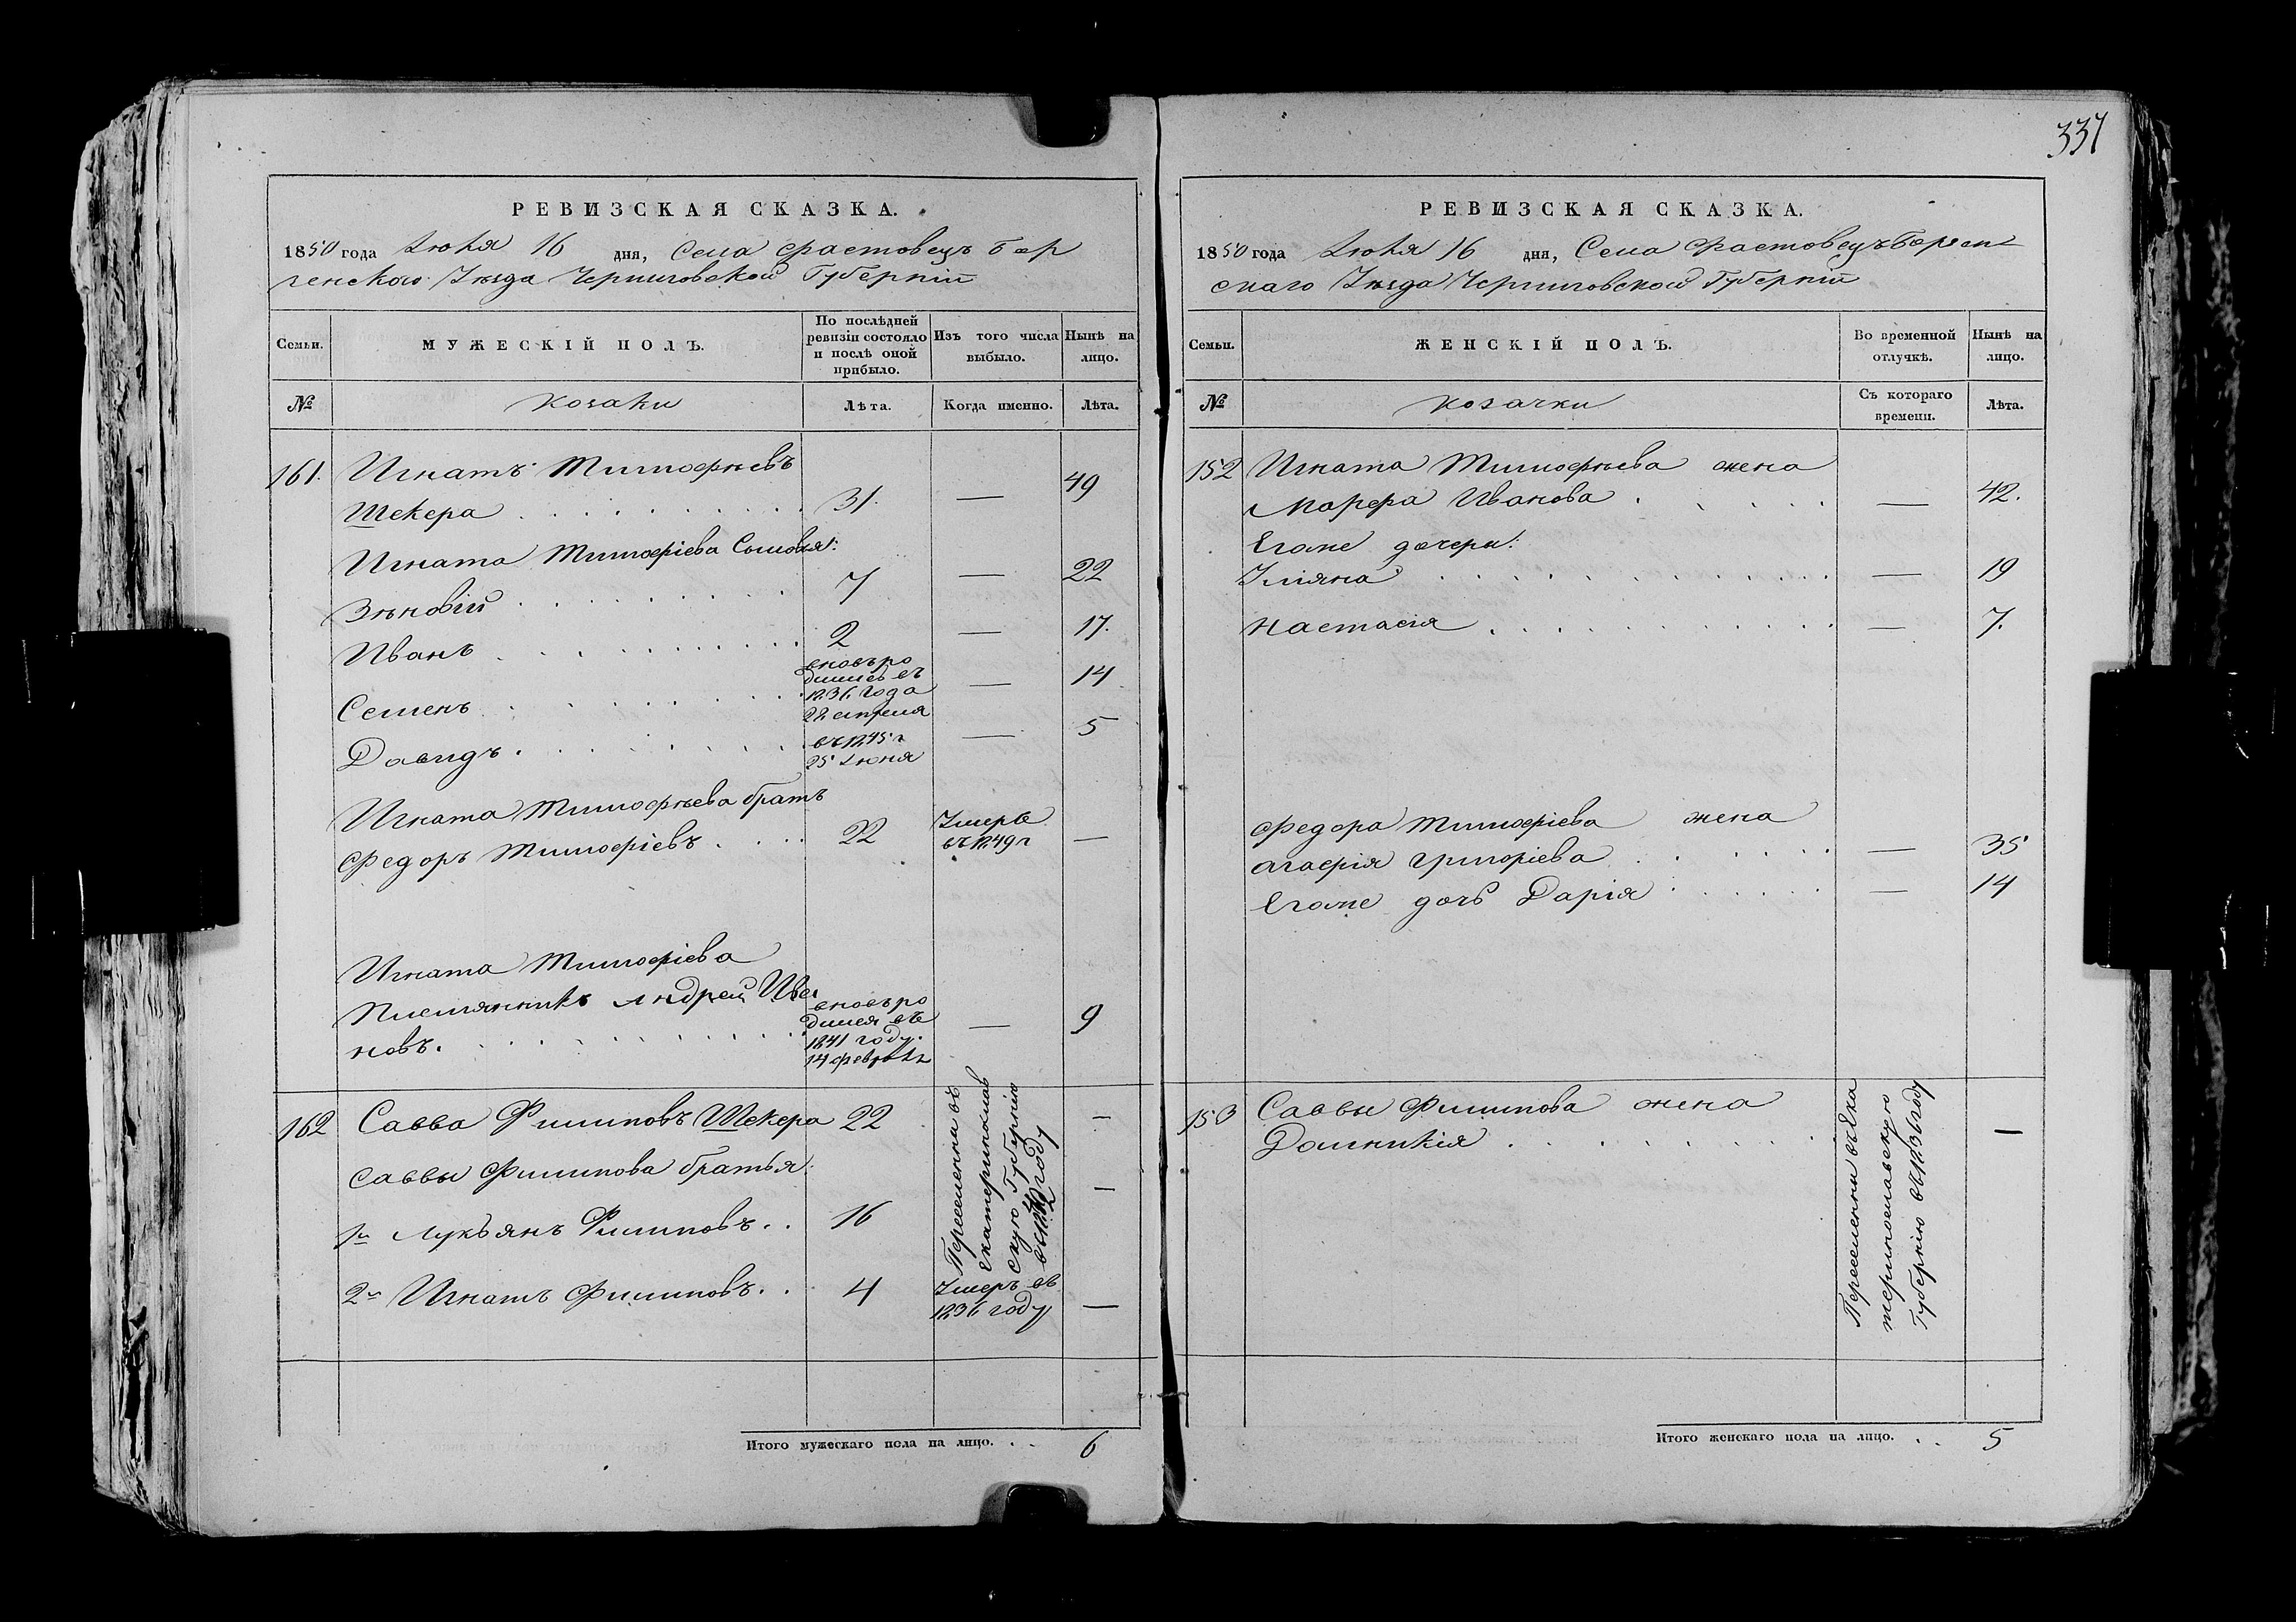 337
РЕВИЗСКАЯ СКАЗКА.
1850 года Іюня 16 дня, Села Фастовецъ Бор
зенского Уѣзда Черниговской Губерніи
Семьи.
МУЖЕСКІЙ ПОЛЪ.
По послѣдней ревизіи состояло и послѣ оной прибыло.
Изъ того числа выбыло.
Нынѣ на лицо.
№
Козаки
Лѣта.
Когда именно.
Лѣта.
161. Игнатъ Тимофѣевъ
Шекера 31. — 49
Игната Тимофіева Сыновья:
Зѣновій 7 — 22
Иванъ 2 — 17.
Семенъ вновь ро
дился въ
1836 года
22 апреля — 14
Давидъ въ 1845 г
25 Іюня — 5
Игната Тимофѣева братъ
Федоръ Тимофіевъ 22 Умеръ
въ 1849 г —
Игната Тимофіева
Племянникъ Андрей Ива
новъ. вновь ро
дился въ
1841 году
14 февраля — 9
162 Савва Филиповъ Шекера 22 —
Саввы Филипова братья:
1й Лукьянъ Филиповъ. 16 —
Переселенны въ
Екатеринослав
скую Губернію
2й Игнатъ Филиповъ. 4 Умеръ въ
1836 году —
Итого мужескаго пола на лицо. 6
РЕВИЗСКАЯ СКАЗКА.
1850 года Іюня 16 дня, Села Фастовецъ Борзен
скаго Уѣзда Черниговской Губерніи
Семьи.
ЖЕНСКІЙ ПОЛЪ.
Во временной отлучкѣ.
Нынѣ на лицо.
№
Козачки
Съ котораго времени.
Лѣта.
152 Игната Тимофѣева жена
Марфа Иванова — 42.
Егоже дочери:
Уляна — 19
Настасія — 7.
Федора Тимофіева жена
Агафія Григоріева — 35
Егоже дочь Дарія — 14
153 Саввы Филипова жена
Домникія —
Переселенны въ Ека
териославскую
Губернію въ 1836 году
Итого женскаго пола на лицо. 5